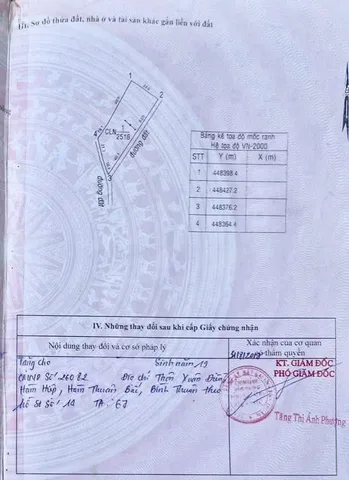 III. Sơ đồ thửa đất, nhà ở và tài sản khác gắn liền với đất
1
2
3
4
CLN
2518
đường đất
đường đất
Bảng kê tọa độ mốc ranh
Hệ tọa độ VN-2000
STT Y (m) X (m)
1 448398.4
2 448427.2
3 448376.2
4 448364.4
IV. Những thay đổi sau khi cấp Giấy chứng nhận
Nội dung thay đổi và cơ sở pháp lý
Xác nhận của cơ quan
có thẩm quyền
Tặng cho Sinh năm 19
CMND Số: 26082 Địa chỉ Thôn Xuân
Hàm Hiệp, Hàm Thuận Bắc, Bình Thuận theo
hồ sơ số 14 TA 67
KT. GIÁM ĐỐC
PHÓ GIÁM ĐỐC
Tăng Thị Ánh Phượng